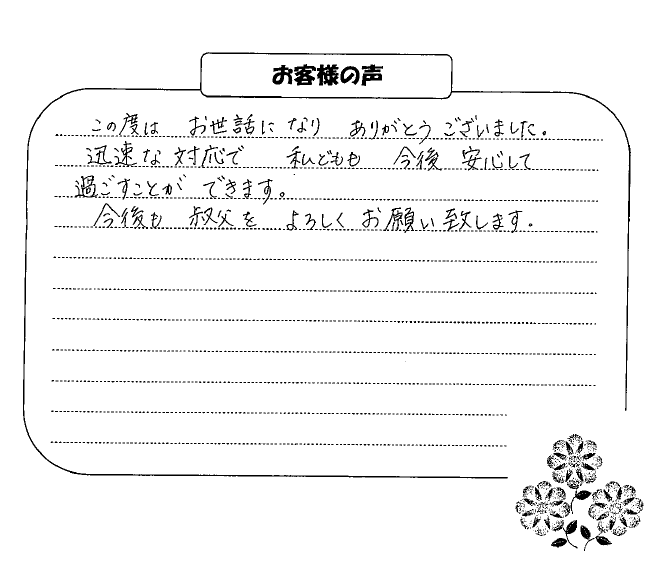 お客様の声
この度は お世話になり ありがとうございました。
迅速な対応で 私どもも 今後 安心して
過ごすことが できます。
今後も 叔父を よろしくお願い致します。